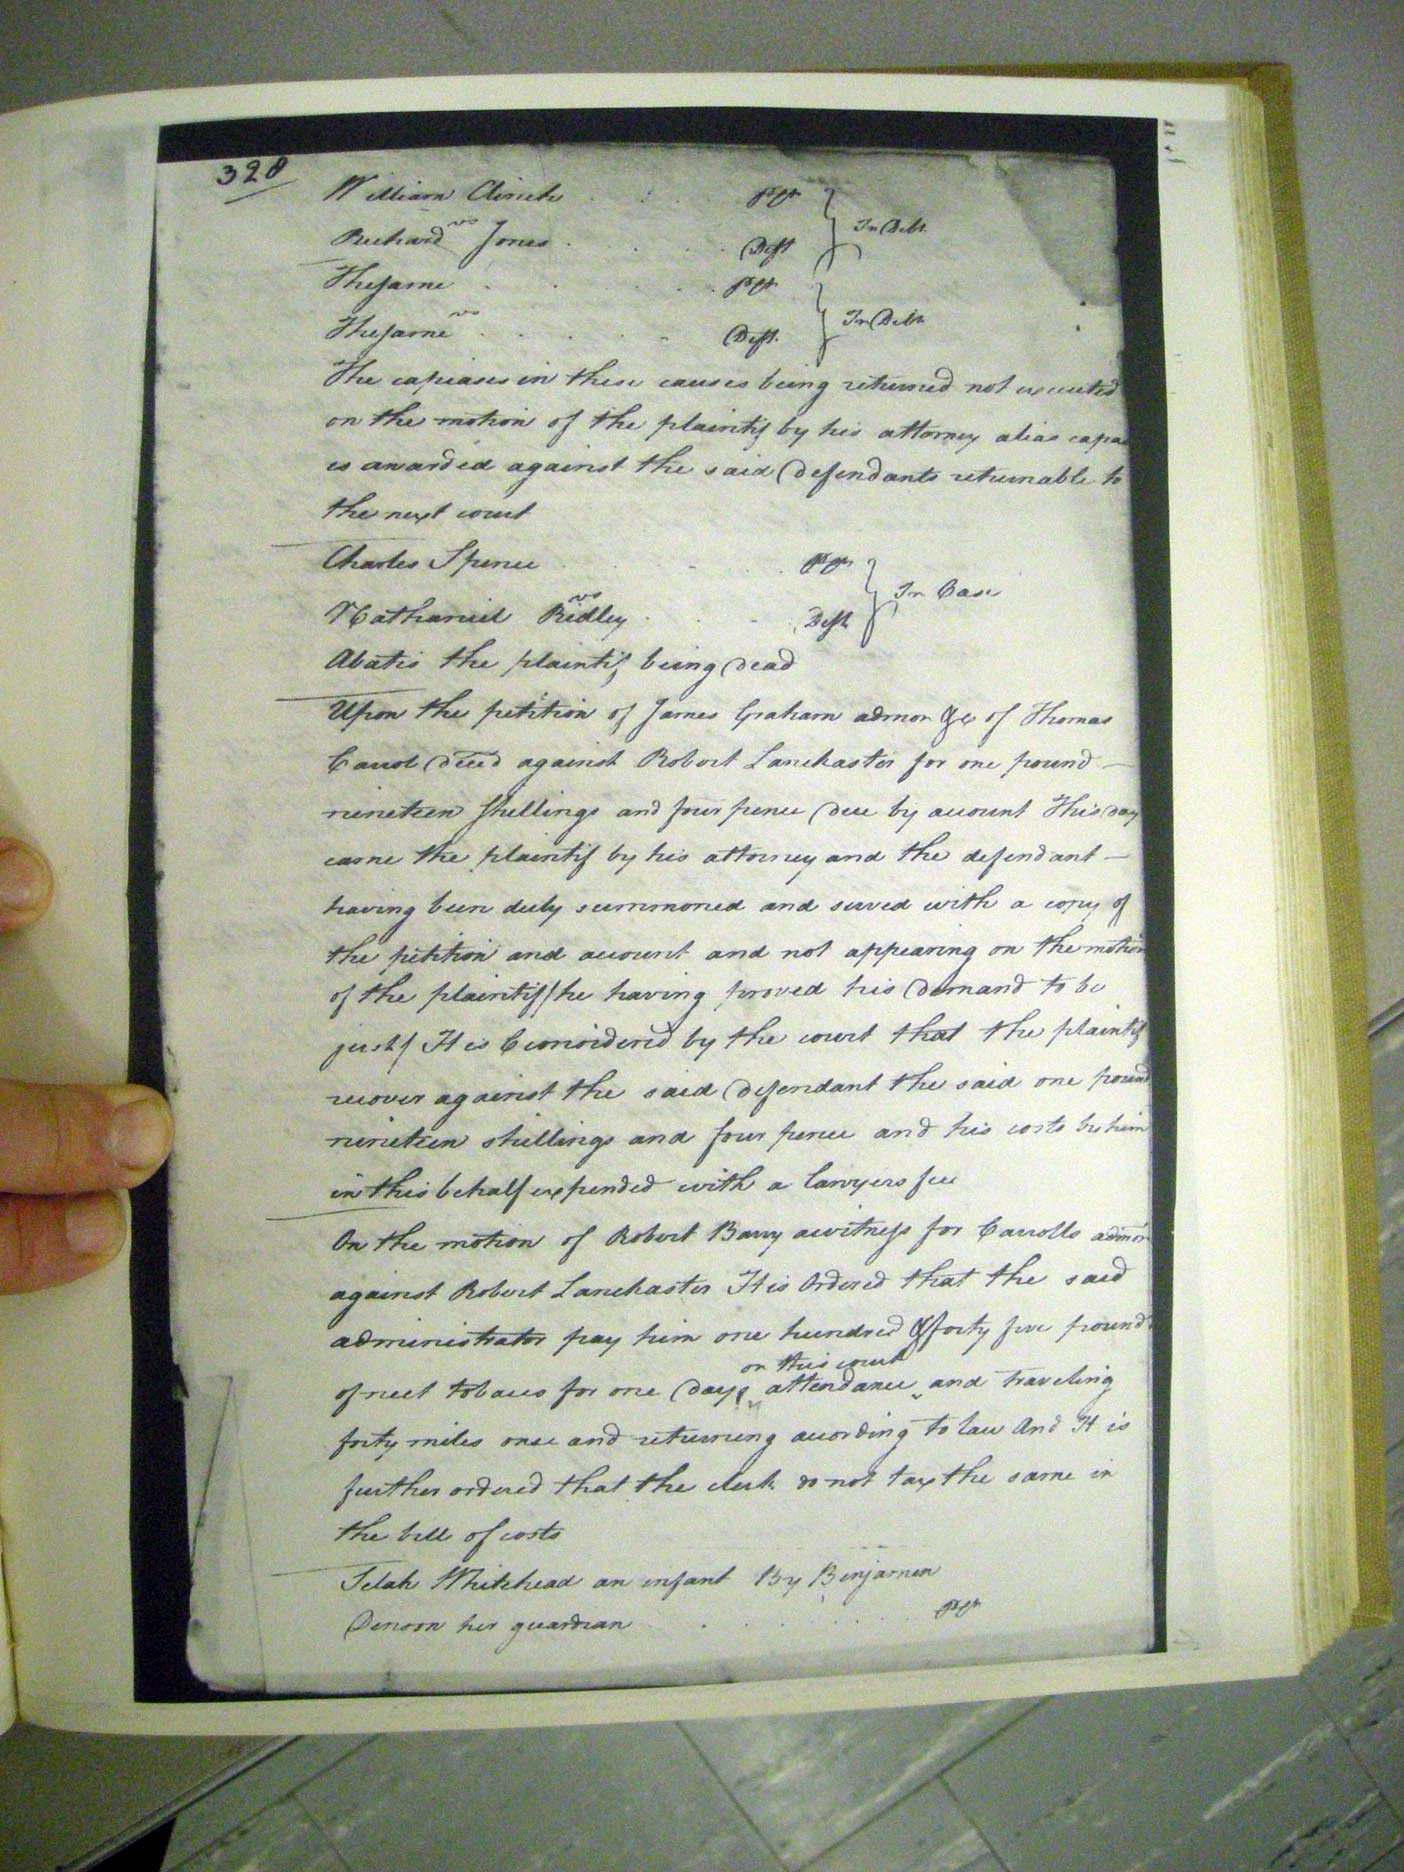 328
William Clinch . . . . Plt
vs
Richard Jones . . . . Deft } In Debt
The same . . . . . Plt
vs
The same . . . . . Deft. } In Debt
The capiases in these causes being returned not executed
on the motion of the plaintif by his attorney alias capias
is awarded against the said Defendants returnable to
the next court
Charles Spence . . . Plt
vs
Nathaniel Ridley . . . Deft } In Case
Abates the plaintif being Dead
Upon the petition of James Graham admor &c of Thomas
Carrol Decd against Robert Lanchaster for one pound —
nineteen shillings and four pence Due by account This Day
came the plaintif by his attorney and the defendant —
having been duly summoned and served with a copy of
the petition and account and not appearing on the motion
of the plaintif/he having proved his Demand to be
just/ It is Considered by the court that the plaintif
recover against the said Defendant the said one pound
nineteen shillings and four pence and his costs by him
in this behalf expended with a lawyers fee
On the motion of Robert Barry a witness for Carrolls admor
against Robert Lanchaster It is Ordered that the said
administrator pay him one hundred & forty five pounds
on this court
of neet tobacco for one Days attendance and traveling
forty miles once and returning according to law And It is
further ordered that the clerk do not tax the same in
the bill of costs
Selah Whitehead an infant By Benjamin
Denson her guardian . . . . Plt